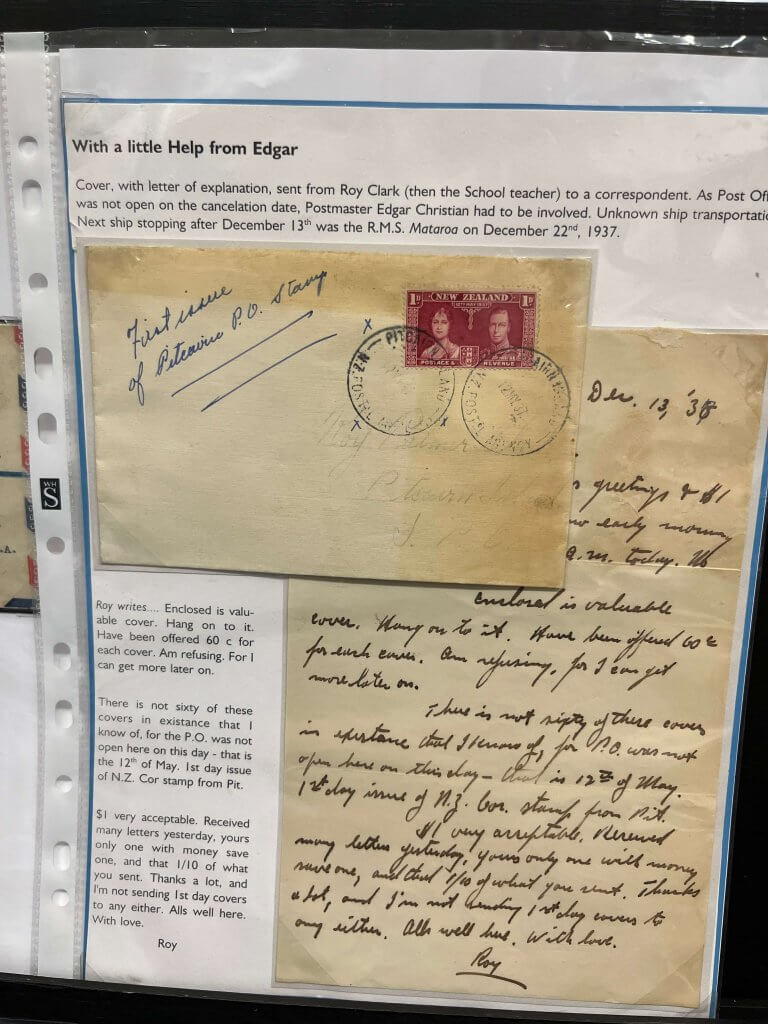 With a little Help from Edgar
Cover, with letter of explanation, sent from Roy Clark (then the School teacher) to a correspondent. As Post Off
was not open on the cancelation date, Postmaster Edgar Christian had to be involved. Unknown ship transportatio
Next ship stopping after December 13th was the R.M.S. Mataroa on December 22nd, 1937.
First issue
of Pitcairn P.O. Stamp
1D NEW ZEALAND 1D
12TH MAY 1937
POSTAGE & REVENUE
PITCAIRN ISLAND
N.Z. POSTAL AGENCY
PITCAIRN ISLAND
N.Z. POSTAL AGENCY
Roy
Pitcairn
S.
WH
S
A.
Dec. 13, '38
greetings & $1
early morning
a.m. today.
enclosed is valuable
cover. Hang on to it. Have been offered 60 c
for each cover. Am refusing, for I can get
more later on.
There is not sixty of these covers
in existance that I know of, for P.O. was not
open here on this day - that is 12th of May.
1st day issue of N.Z. Cor. stamp from Pit.
$1 very acceptable. Received
many letters yesterday, yours only one with money
save one, and that 1/10 of what you sent. Thanks
a lot, and I'm not sending 1st day covers to
any either. Alls well here. With love.
Roy
Roy writes.... Enclosed is valu-
able cover. Hang on to it.
Have been offered 60 c for
each cover. Am refusing. For I
can get more later on.
There is not sixty of these
covers in existance that I
know of, for the P.O. was not
open here on this day - that is
the 12th of May. 1st day issue
of N.Z. Cor stamp from Pit.
$1 very acceptable. Received
many letters yesterday, yours
only one with money save
one, and that 1/10 of what
you sent. Thanks a lot, and
I'm not sending 1st day covers
to any either. Alls well here.
With love.
Roy